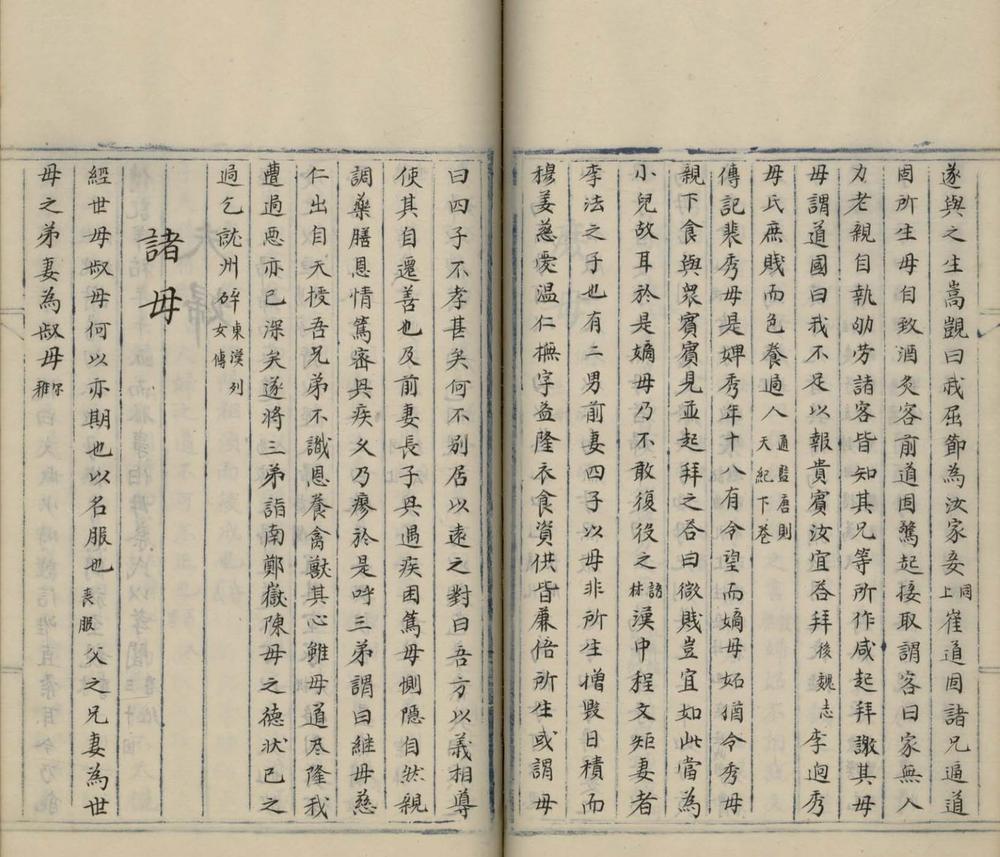 遂與之生嵩覬曰我屈節為汝家妾同上崔道固諸兄逼道
固所生母自致酒炙客前道固驚起接取謂客曰家無人
力老親自執劬勞諸客皆知其兄等所作咸起拜謝其母
母謂道國曰我不足以報貴賓汝宜荅拜後魏志李迥秀
母氏庶賤而色養過人通鑑唐則天紀下卷
傳記裴秀母是婢秀年十八有令望而嫡母妬猶令秀母
親下食與衆賓賓見並起拜之荅曰微賤豈宜如此當為
小兒故耳於是嫡母乃不敢復役之語林漢中程文矩妻者
李法之子也有二男前妻四子以母非所生憎毀日積而
穆姜慈愛温仁撫字益隆衣食資供皆兼倍所生或謂母
曰四子不孝甚矣何不别居以遠之對曰吾方以義相導
使其自還善也及前妻長子興遇疾困篤母惻隱自然親
調藥膳恩情篤密興疾久乃瘳於是呼三弟謂曰継母慈
仁出自天授吾兄弟不識恩養禽獸其心雖母道益隆我
曹過惡亦已深矣遂將三弟詣南鄭嶽陳母之德狀已之
過乞就州辟東漢列女傳
諸母
經世母叔母何以亦期也以名服也喪服父之兄妻為世
母之弟妻為叔母尔雅